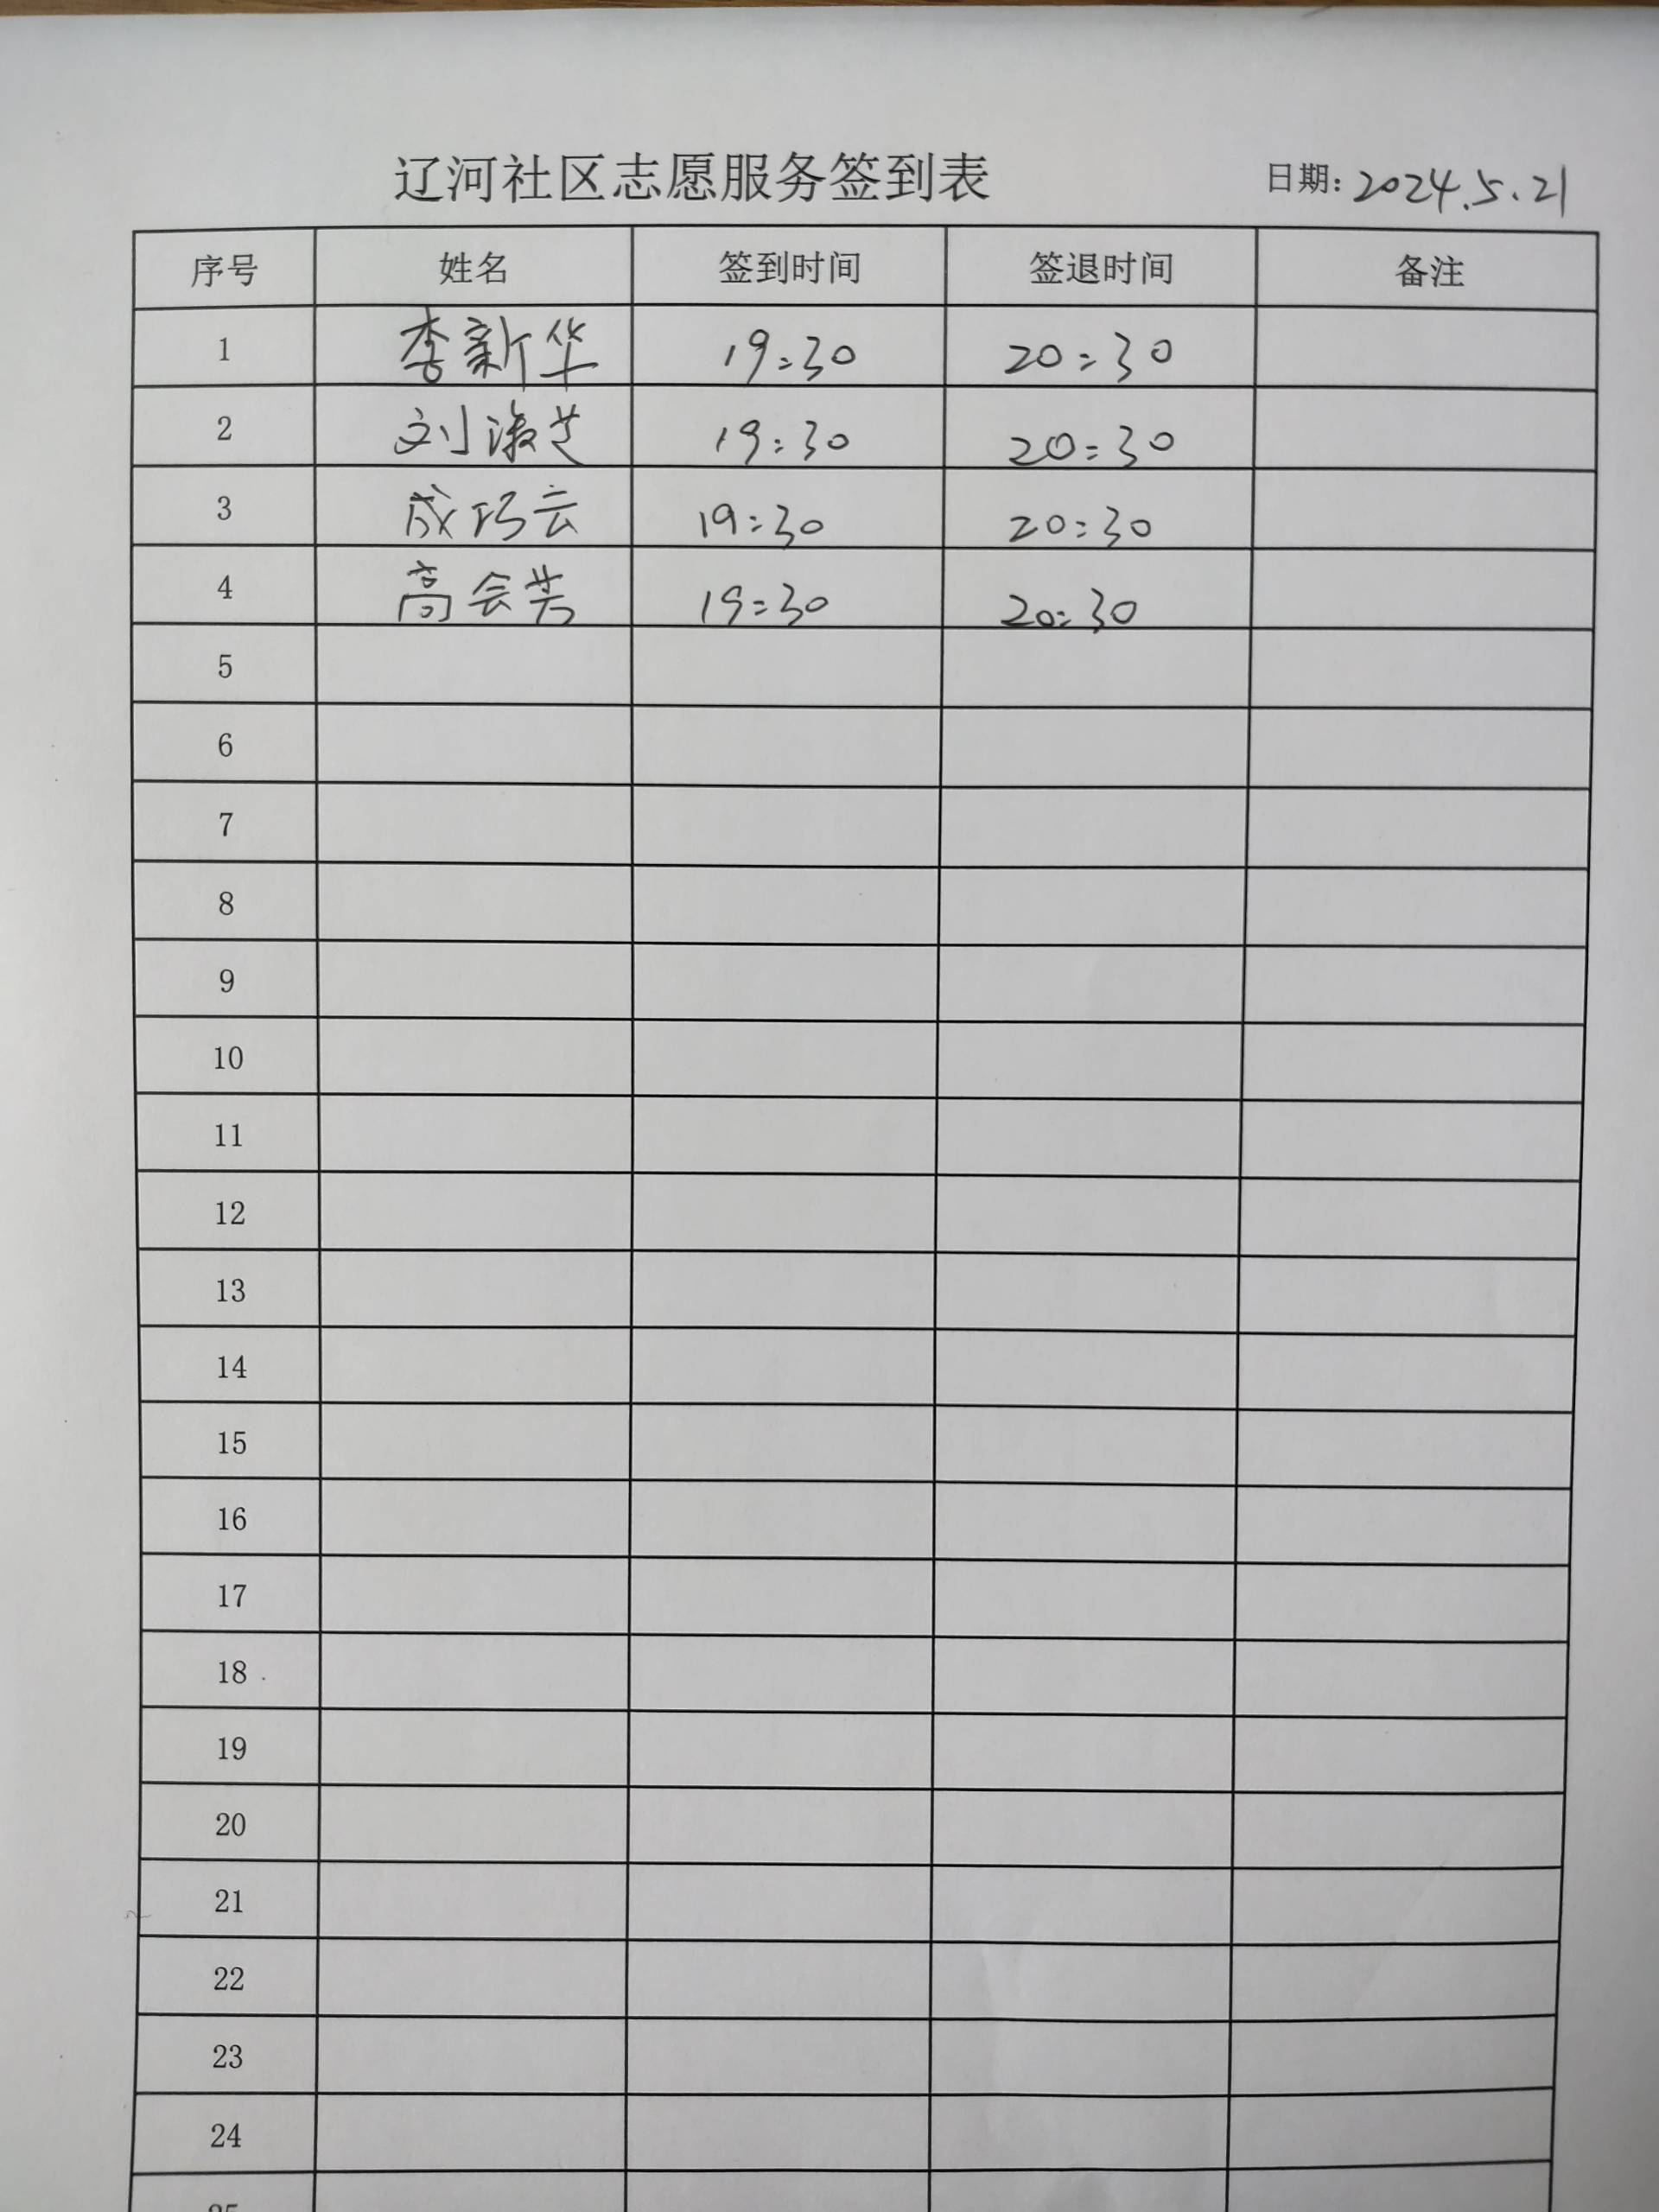 辽河社区志愿服务签到表 日期：2024.5.21
序号 姓名 签到时间 签退时间 备注
1 李新华 19:30 20:30
2 刘淑芝 19:30 20:30
3 成巧云 19:30 20:30
4 高会芳 19:30 20:30
5
6
7
8
9
10
11
12
13
14
15
16
17
18
19
20
21
22
23
24
25